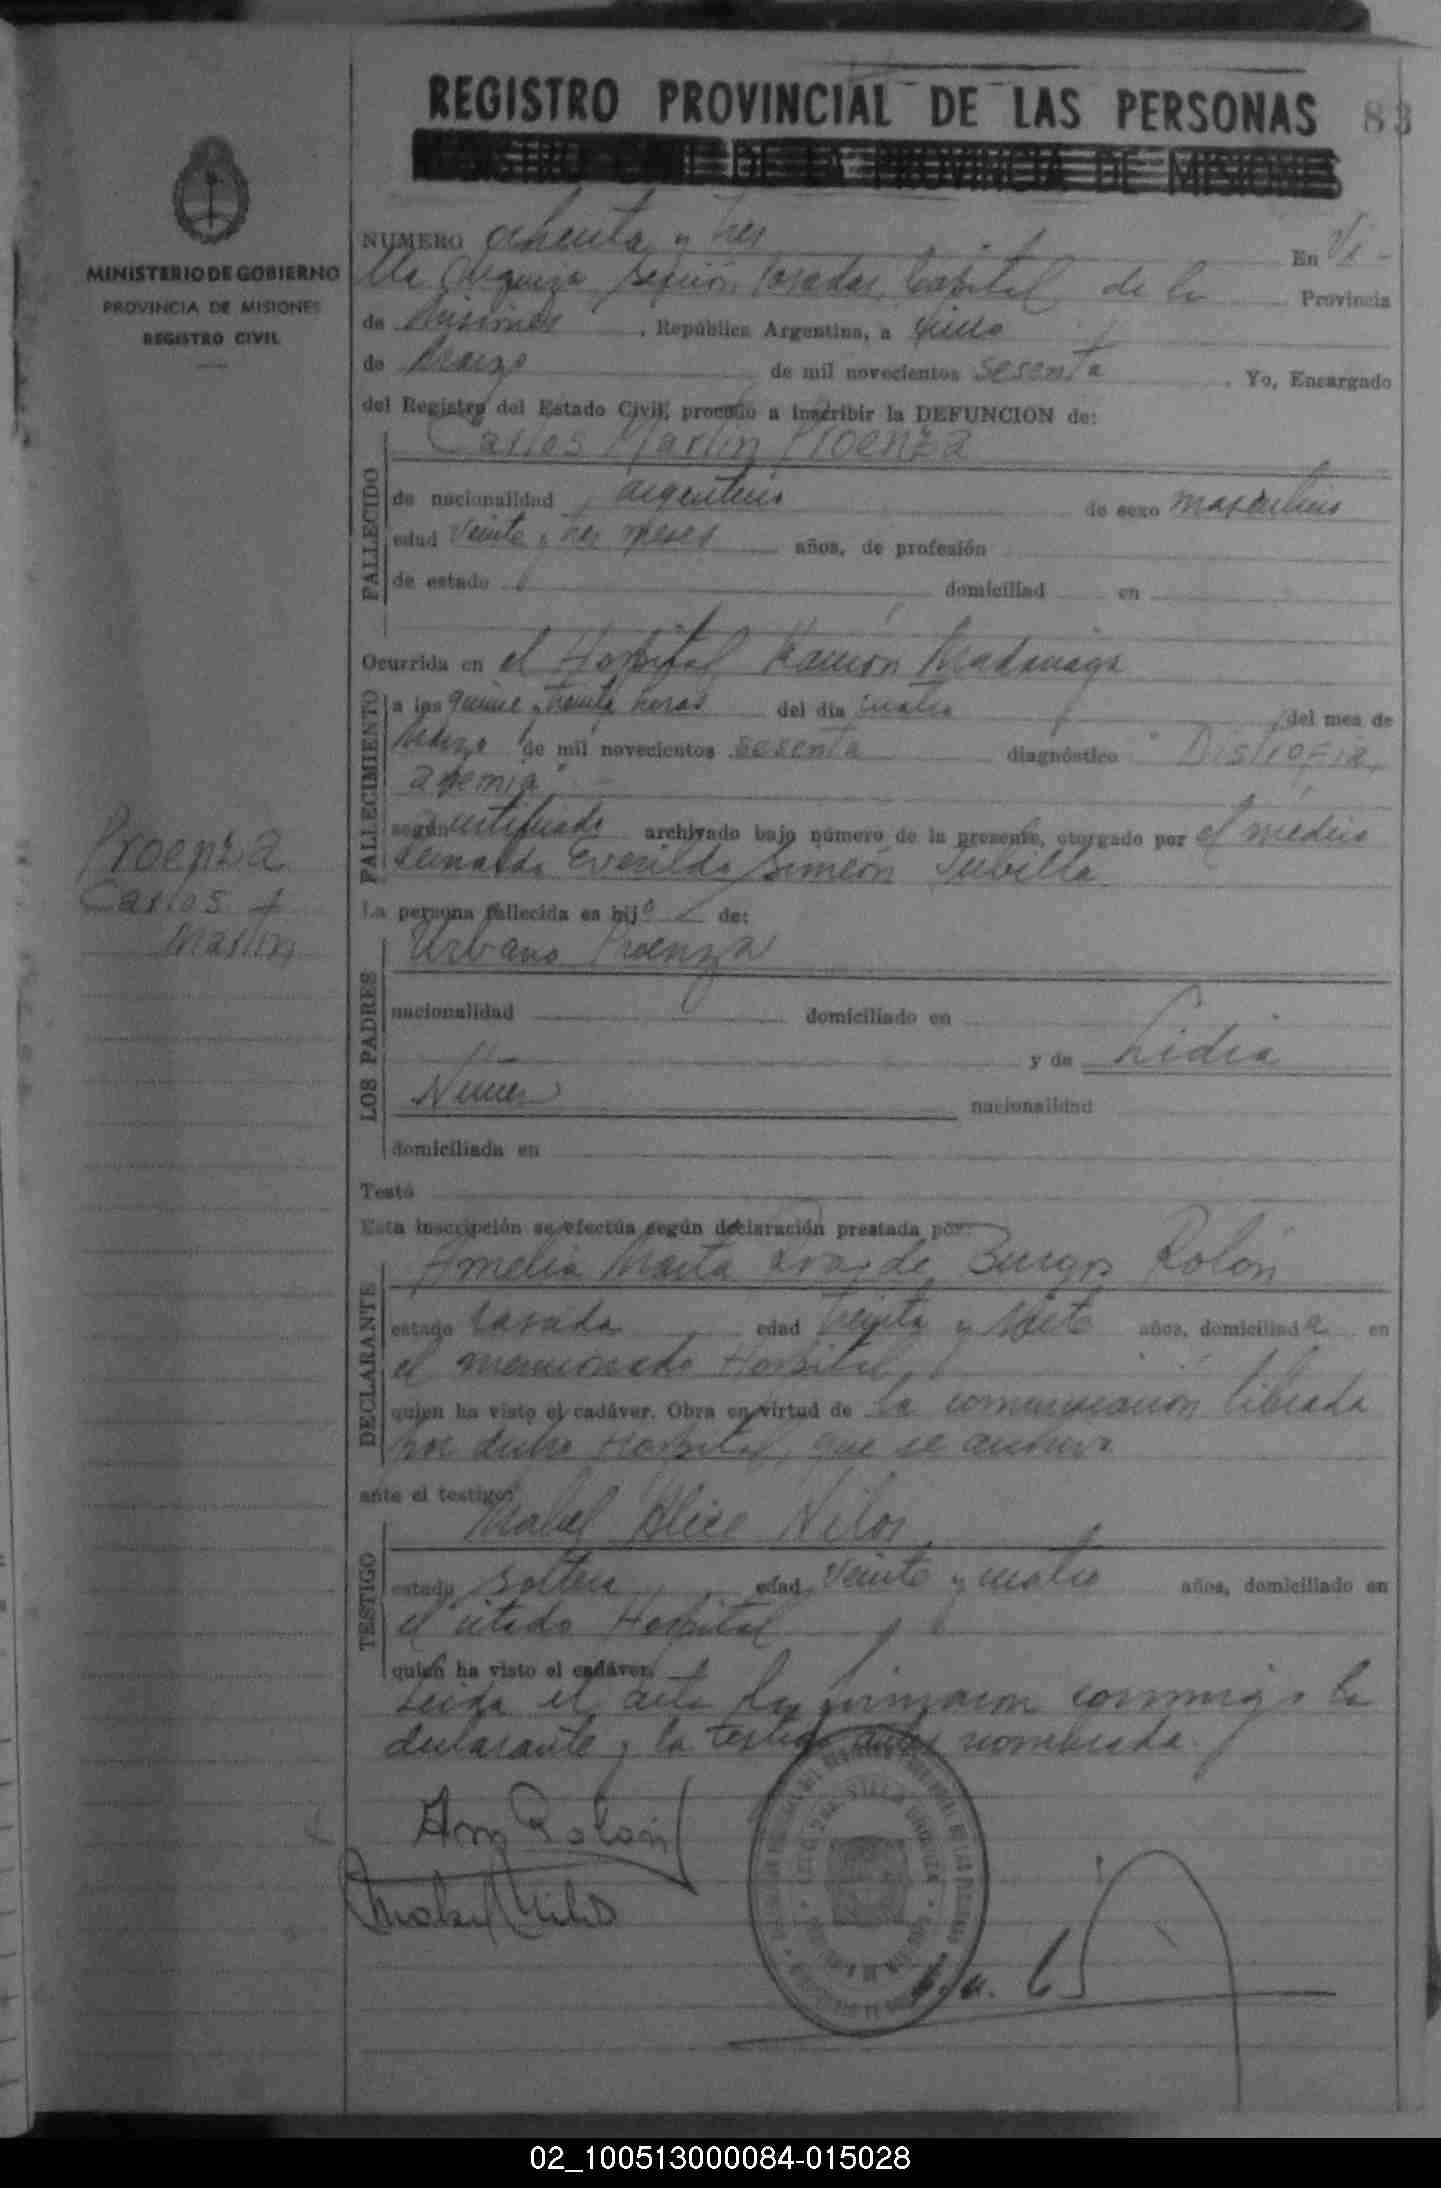 REGISTRO PROVINCIAL DE LAS PERSONAS 83
MINISTERIO DE GOBIERNO
PROVINCIA DE MISIONES
REGISTRO CIVIL
NUMERO ochenta y tres En Vi-
lla Urquiza Sección Posadas, Capital de la Provincia
de Misiones, República Argentina, a
de Marzo de mil novecientos sesenta, Yo, Encargado
del Registro del Estado Civil, procedo a inscribir la DEFUNCION de:
Carlos Martin Proenza
FALLECIDO
de nacionalidad argentino de sexo masculino
edad veinte y tres meses años, de profesión
de estado domiciliad en
Ocurrida en el Hospital Ramón Madariaga
FALLECIMIENTO
a las quince y treinta horas del día cuatro del mes de
Marzo de mil novecientos sesenta diagnóstico "Distrofia,
anemia"
según certificado archivado bajo número de la presente, otorgado por el médico
Everildo Simeón
Proenza
Carlos +
Martin
La persona fallecida es hijo de:
LOS PADRES
Urbano Proenza
nacionalidad domiciliado en
y de Lidia
nacionalidad
domiciliada en
Testó
Esta inscripción se efectúa según declaración prestada por:
DECLARANTE
Amelia Marta de Burgos Rolón
estado casada edad treinta y siete años, domiciliada en
el mencionado Hospital
quien ha visto el cadáver. Obra en virtud de la comunicación librada
por dicho Hospital, que se archiva
ante el testigo:
TESTIGO
Mabel Alice Nilos
estado soltera edad veinte y cuatro años, domiciliado en
el citado Hospital
quien ha visto el cadáver.
Leida el acta la firmaron conmigo la
declarante y la testigo antes nombrada.
02_100513000084-015028